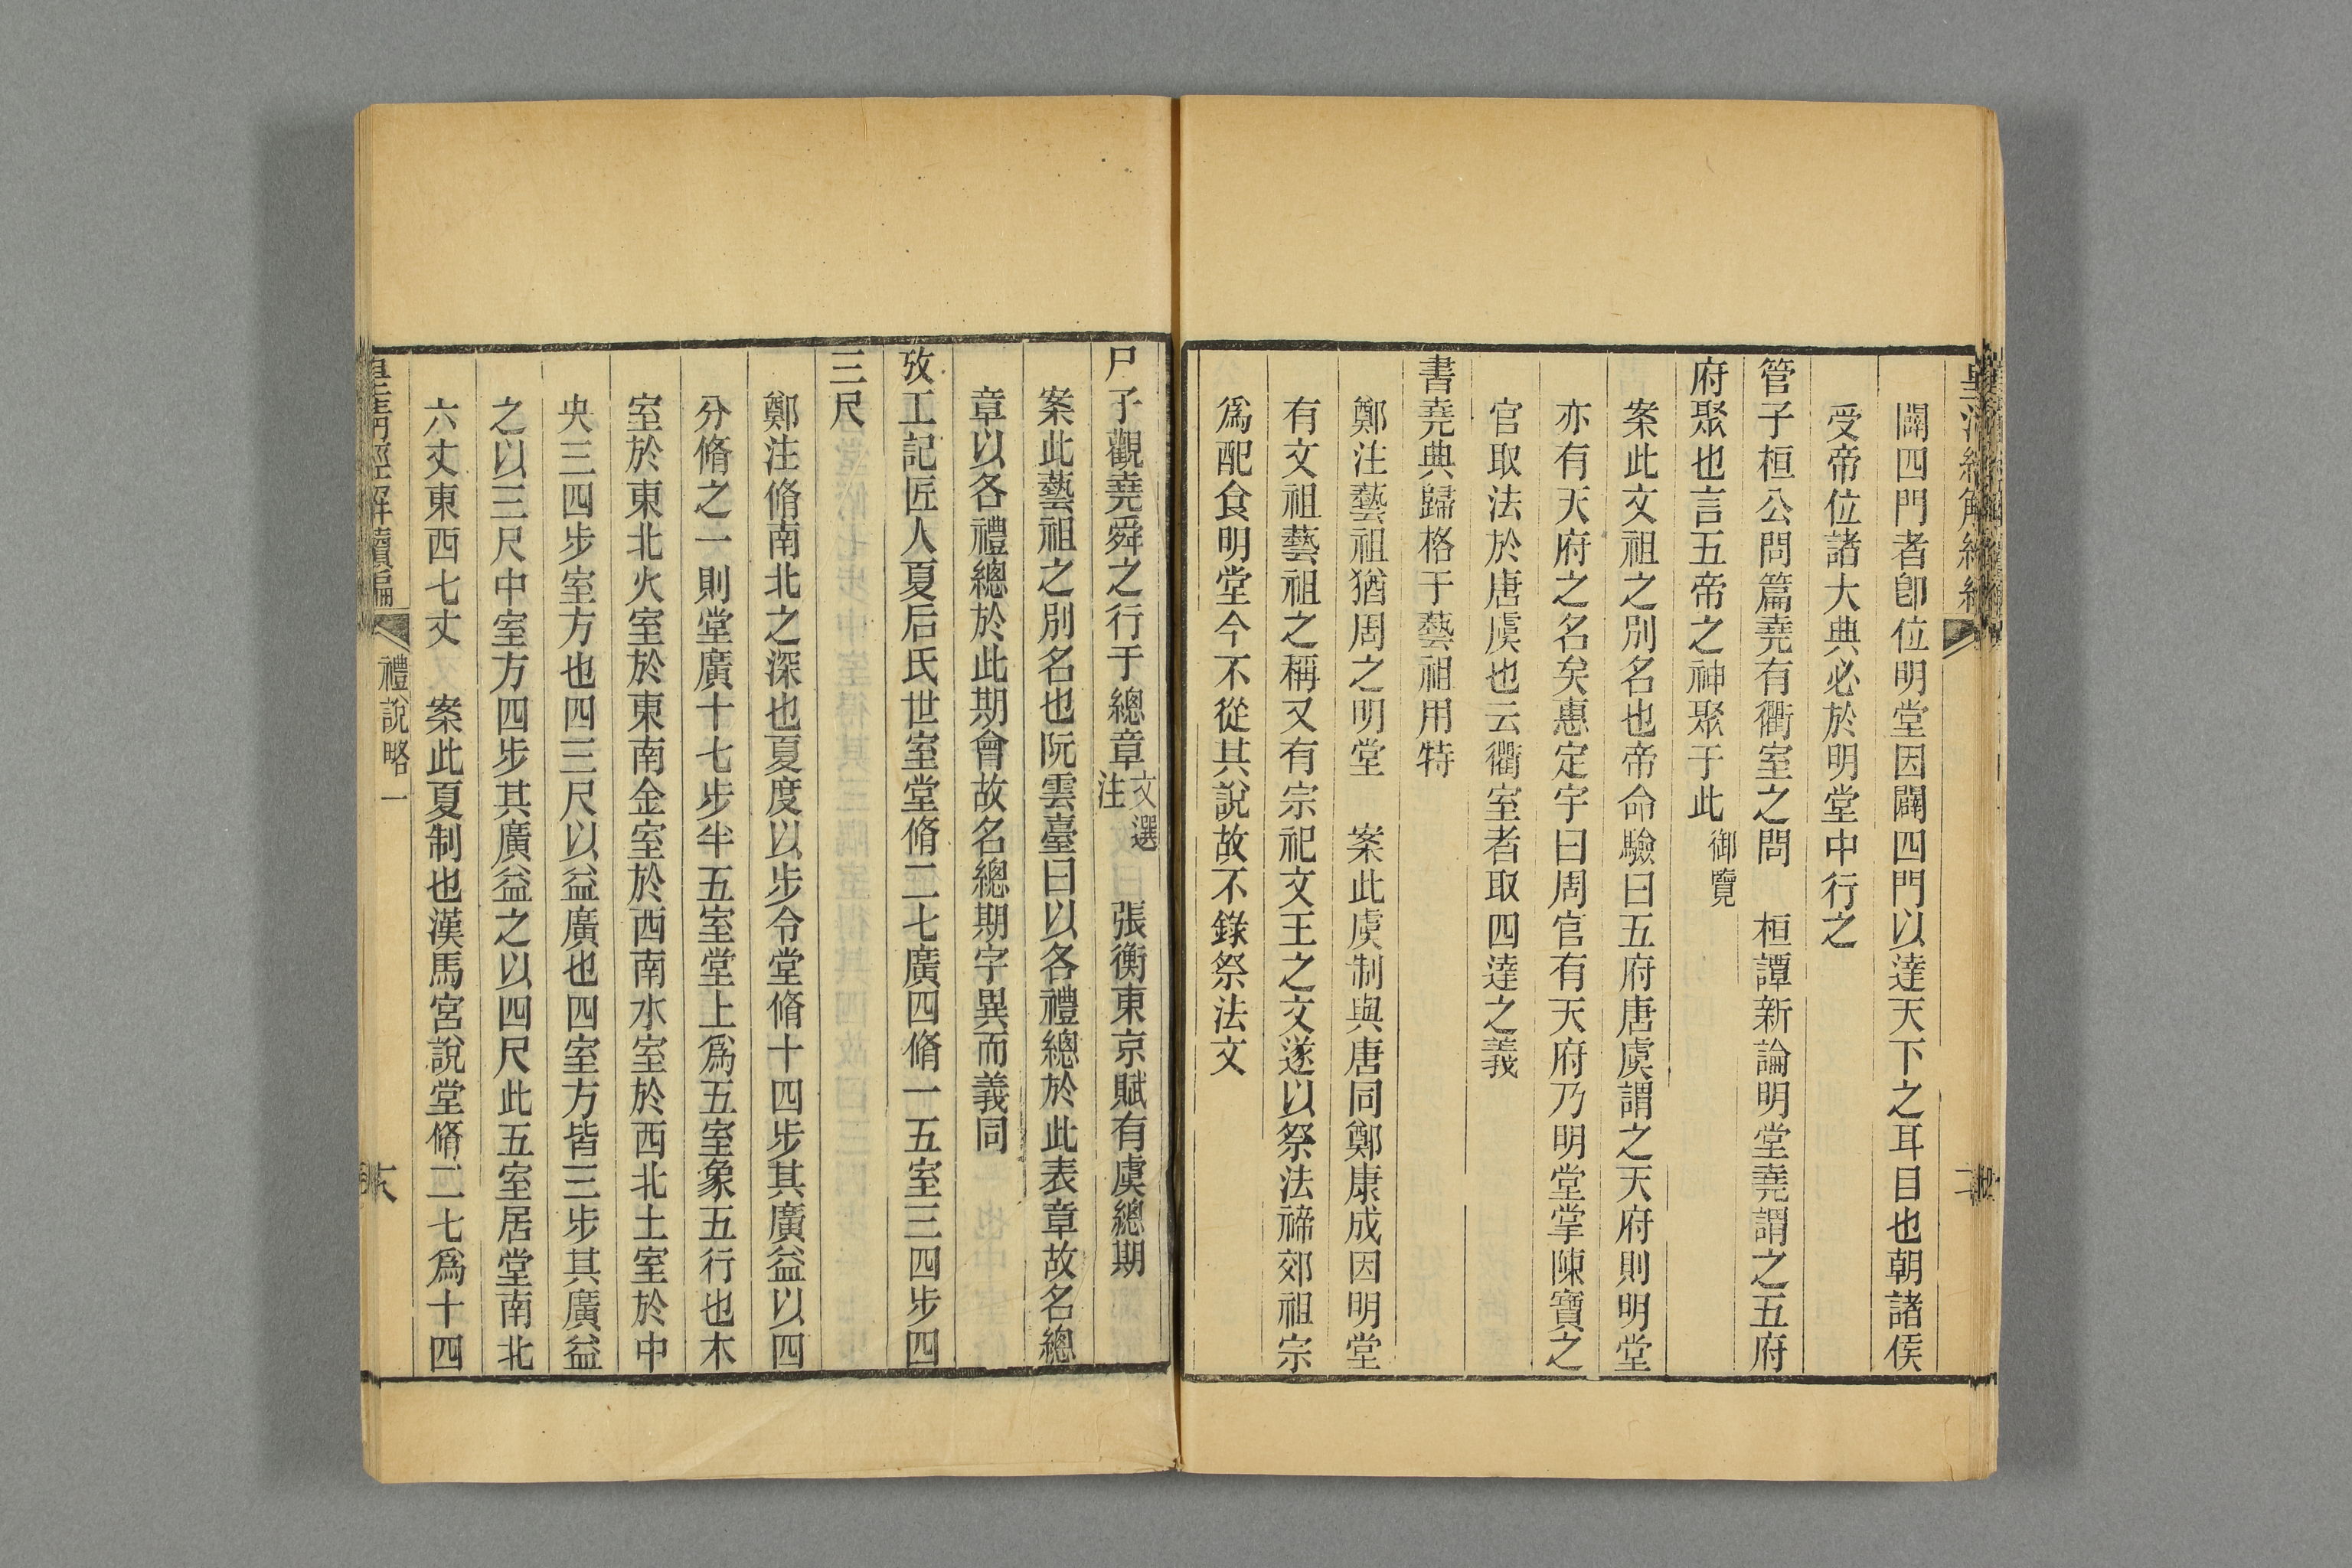 闢四門者卽位明堂因闢四門以達天下之耳目也朝諸侯
受帝位諸大典必於明堂中行之
管子桓公問篇堯有衢室之問　桓譚新論明堂堯謂之五府
府聚也言五帝之神聚于此御覽
案此文祖之別名也帝命驗曰五府唐虞謂之天府則明堂
亦有天府之名矣惠定宇曰周官有天府乃明堂掌陳寶之
官取法於唐虞也云衢室者取四達之義
書堯典歸格于藝祖用特
鄭注藝祖猶周之明堂　案此虞制與唐同鄭康成因明堂
有文祖藝祖之稱又有宗祀文王之文遂以祭法禘郊祖宗
爲配食明堂今不從其說故不錄祭法文
尸子觀堯舜之行于總章文選注　張衡東京賦有虞總期
案此藝祖之別名也阮雲臺曰以各禮總於此表章故名總
章以各禮總於此期會故名總期字異而義同
攷工記匠人夏后氏世室堂脩二七廣四脩一五室三四步四
三尺
鄭注脩南北之深也夏度以步令堂脩十四步其廣益以四
分脩之一則堂廣十七步半五室堂上爲五室象五行也木
室於東北火室於東南金室於西南水室於西北土室於中
央三四步室方也四三尺以益廣也四室方皆三步其廣益
之以三尺中室方四步其廣益之以四尺此五室居堂南北
六丈東西七丈　案此夏制也漢馬宮說堂脩二七爲十四
皇淸經解續編
禮說略一